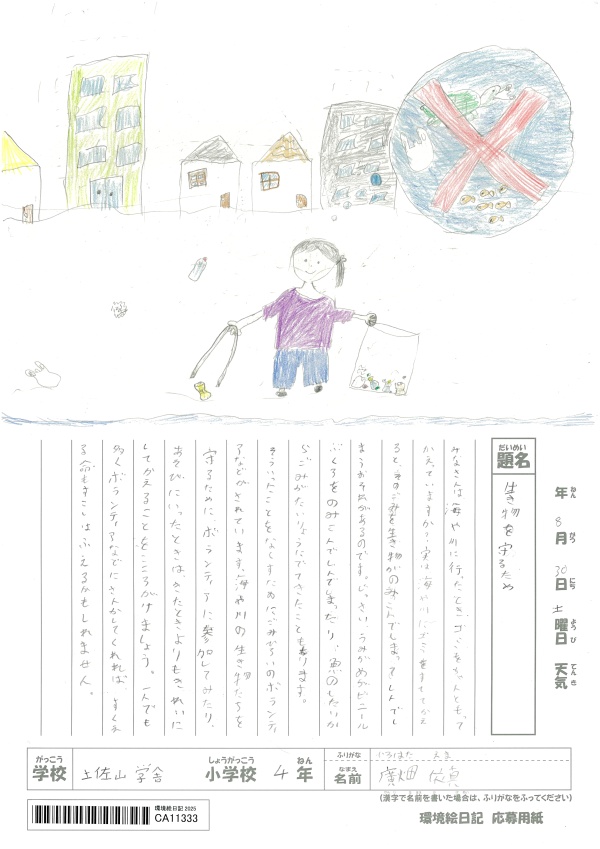 だいめい
題名
生き物を守るため
年 8月 30日 土曜日 天気
ねん がつ にち ようび てんき
みなさんは海や川に行ったとき、ゴミをちゃんともって
かえっていますか?実は海や川にゴミをすててかえ
ると、そのごみを生き物がのみこんでしまってしんでし
まうおそれがあるのです。じっさい、うみがめがビニール
ぶくろをのみこんでしんでしまったり、魚のしたいか
らごみがたいりょうにでてきたこともあります。
そういったことをなくすために、ごみひろいのボランティ
アなどがされています。海や川の生き物たちを
守るために、ボランティアに参加してみたり、
あそびにいったときは、きたときよりもきれいに
してかえることをこころがけましょう。一人でも
多くボランティアなどにさんかしてくれれば、すくえ
る命もすこしはふえるかもしれません。
がっこう
学校
土佐山学舎
しょうがっこう
小学校
4年
ねん
ふりがな
ひろはた えま
なまえ
名前
廣畑
(漢字で名前を書いた場合は、ふりがなをふってください)
環境絵日記 2025
CA11333
環境絵日記 応募用紙